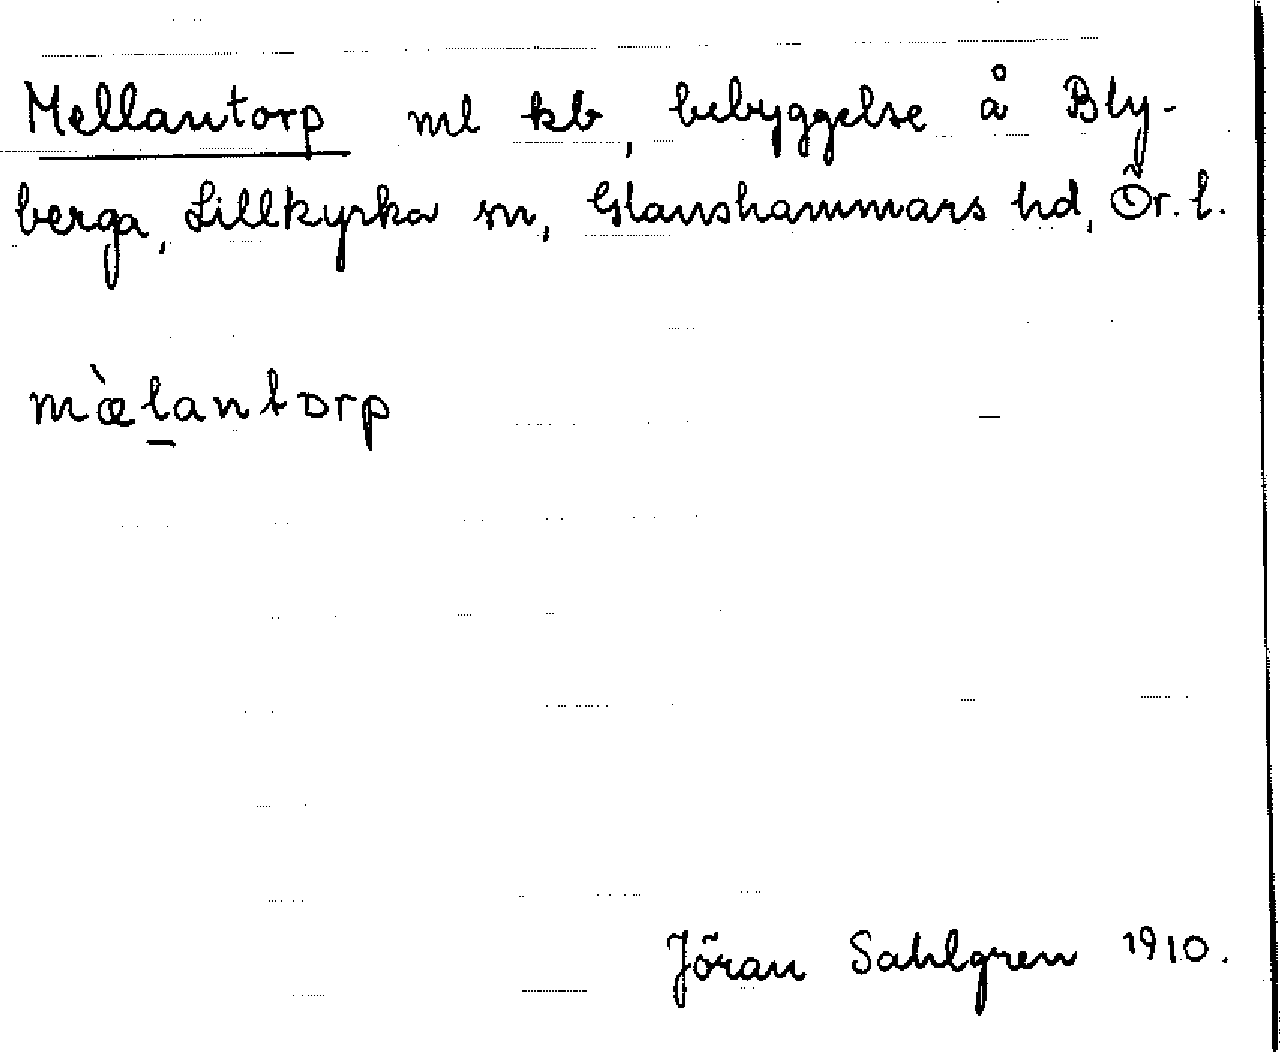 Mellantorp ml kb, bebyggelse å Bly-
berga, Lillkyrka sn, Glanshammars hd, Ör. l.
mὰ̀lantorp
Jöran Sahlgren 1910.